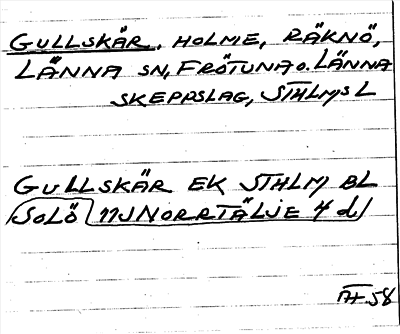 GULLSKÄR, HOLME, RÄKNÖ,
LÄNNA SN, FRÖTUNA O. LÄNNA
SKEPPSLAG, STHLMS L
GULLSKÄR EK STHLM BL
SOLÖ 11J NORRTÄLJE 4 d
58